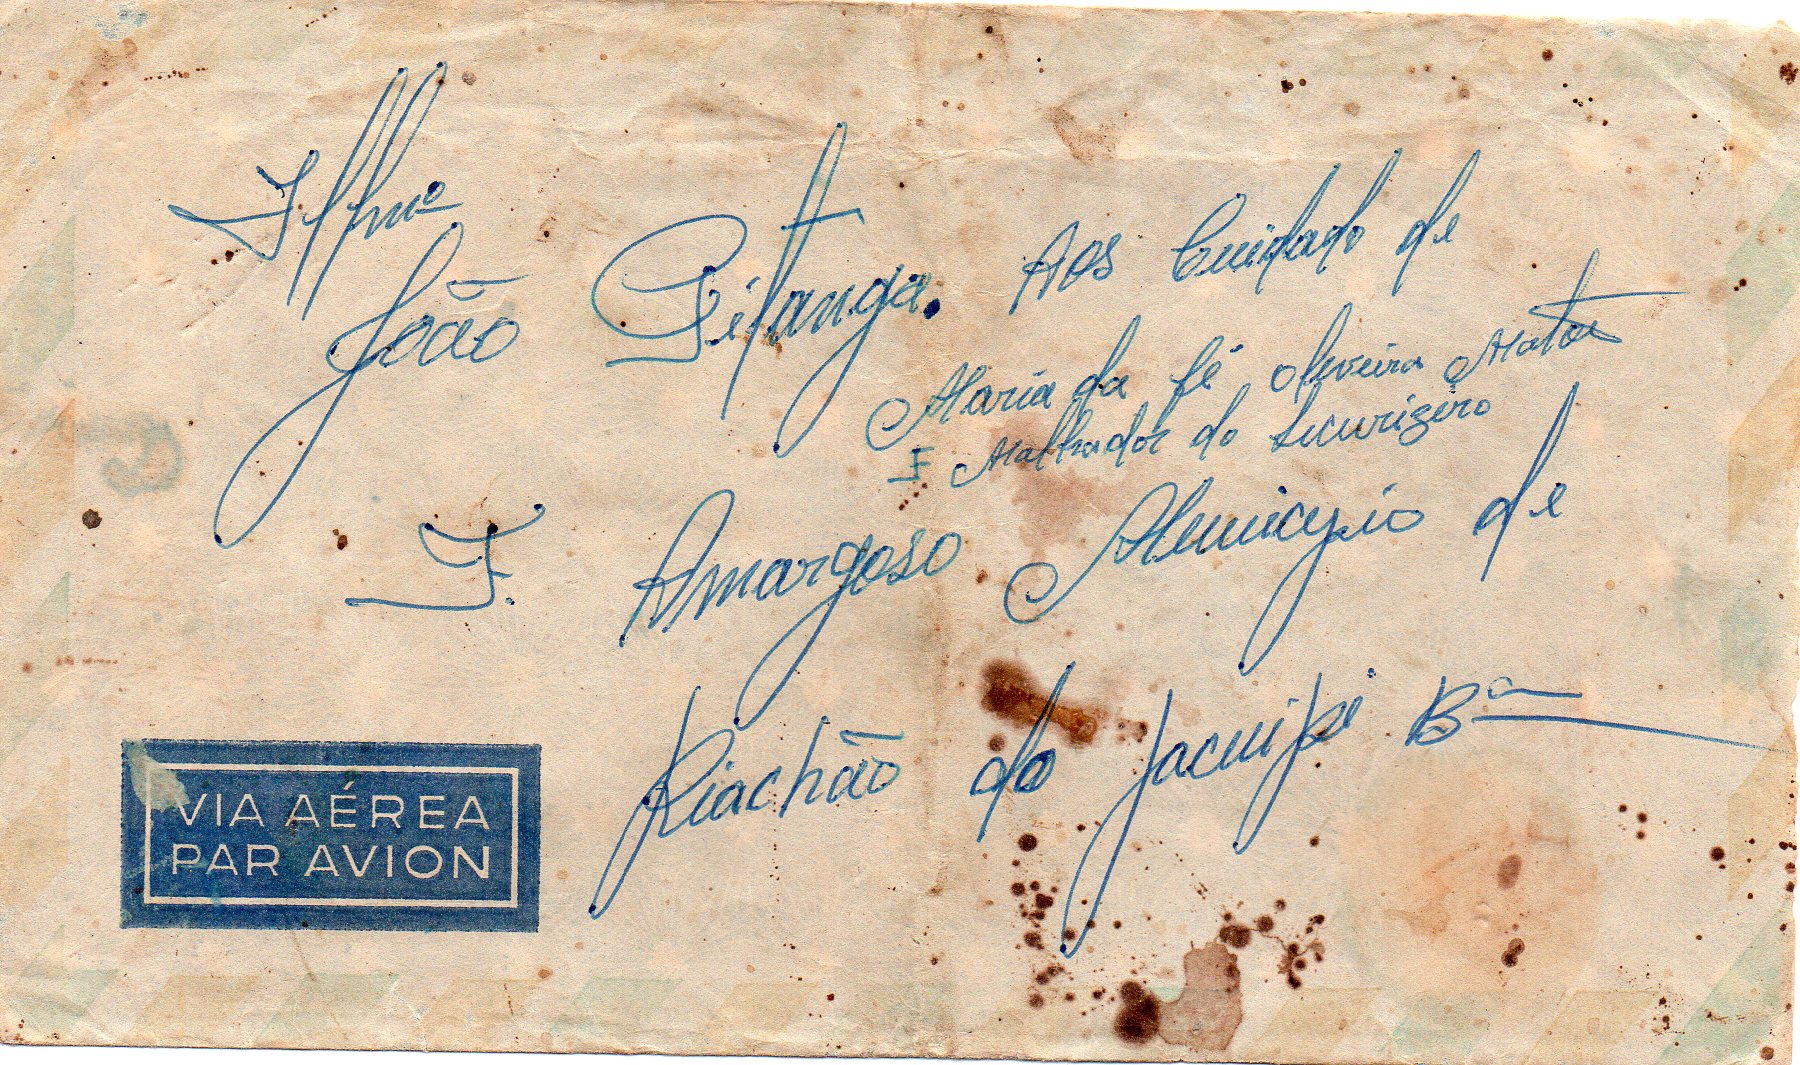 Illmº
João Pitanga. Aos Cuidado de
Maria da fé Oliveira Matos
F Malhador do Licurizeiro
F. Amargoso Município de
Riachão do Jacuipe Bª
VIA AÉREA
PAR AVION